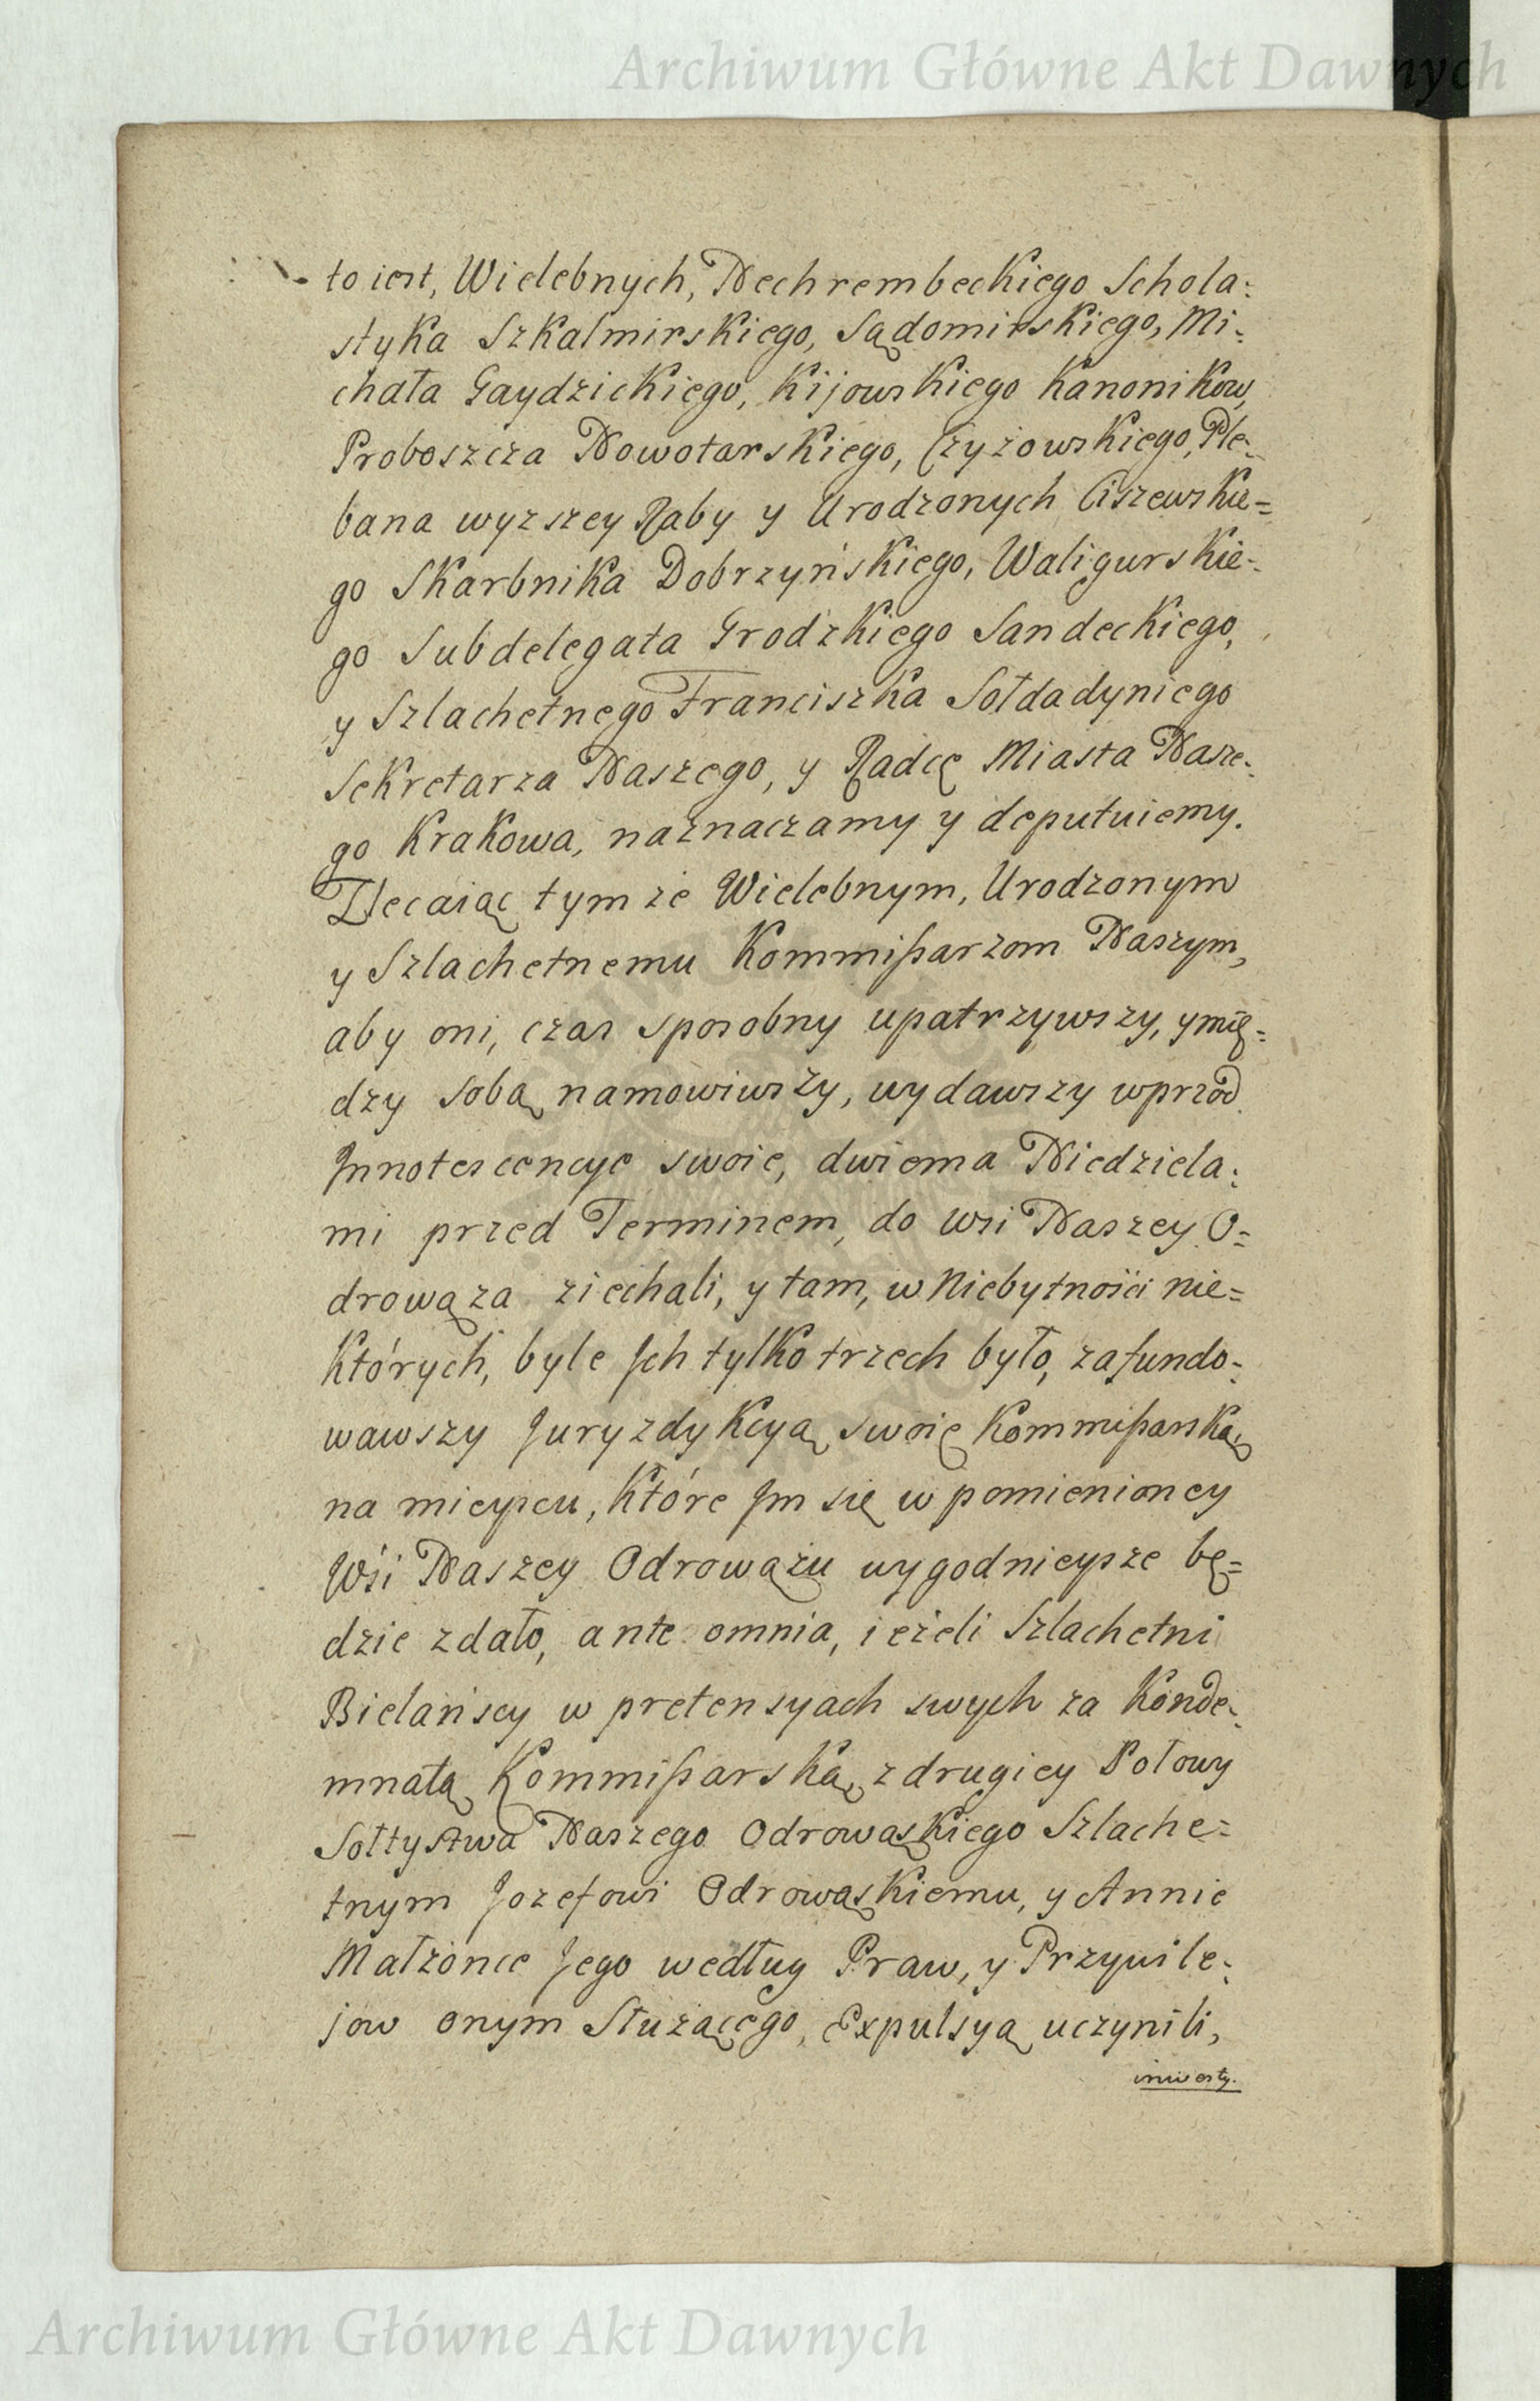 Archiwum Główne Akt Dawnych
to iest, Wielebnych, Nechrembeckiego Schola:
styka Szkalmirskiego, Sądomirskiego, Mi:
chała Gaydzickiego, Kijowskiego Kanonikow,
Proboszcza Nowotarskiego, Czyżowskiego, Ple:
bana wyzszey Raby y Urodzonych Ciszewskie=
go Skarbnika Dobrzyńskiego, Waligurskie:
go Subdelegata Grodzkiego Sandeckiego,
y Szlachetnego Franciszka Sołdadyniego
Sekretarza Naszego, y Radcę Miasta Nasze:
go Krakowa, naznaczamy y deputuiemy.
Zlecaiąc tym że Wielebnym, Urodzonym
y Szlachetnemu Kommißarzom Naszym,
aby oni, czas sposobny upatrzywszy, y mię=
dzy sobą namowiwszy, wydawszy wprzod
Innotescencye swoie, dwiema Niedziela:
mi przed Terminem, do wsi Naszey O=
drowąza ziechali, y tam, w Niebytnośći nie=
których, byle Ich tylko trzech było, zafundo:
wawszy Juryzdykcyą swoię Kommißarską,
na mieyscu, które Im się w pomienioney
Wśi Naszey Odrowązu wygodnieysze bę=
dzie zdało, ante omnia, ieżeli Szlachetni
Bielańscy w pretensyach swych za Konde:
mnatą Kommißarską, z drugiey Połowy
Sołtystwa Naszego Odrowąskiego Szlache=
tnym Jozefowi Odrowąskiemu, y Annie
Małżonce Jego według Praw, y Przywile:
jow onym Służącego, Expulsyą uczynili,
inwesty.
Archiwum Główne Akt Dawnych